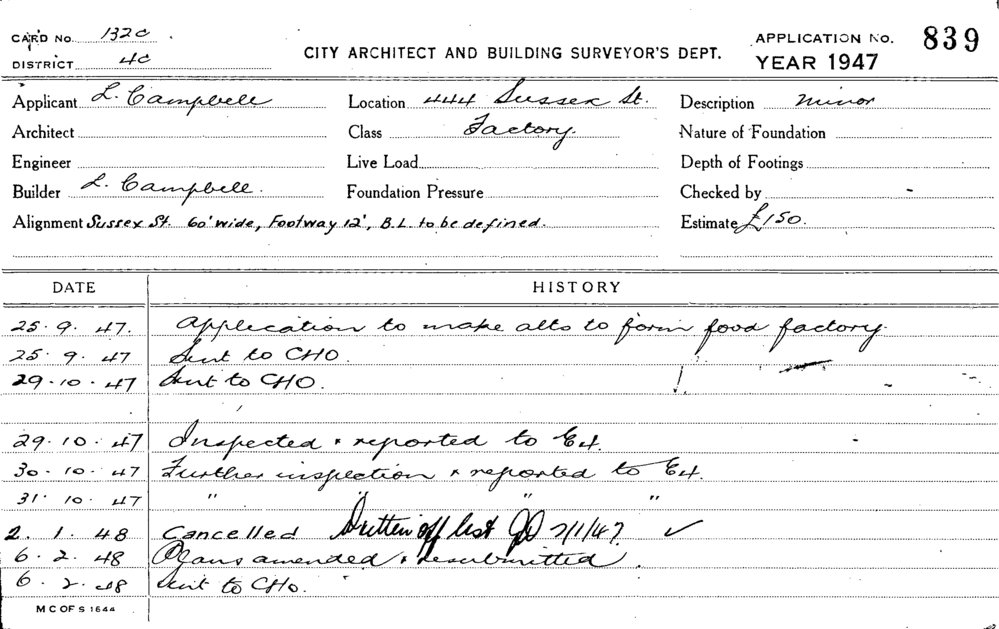 CARD NO. 132C
DISTRICT 4C
CITY ARCHITECT AND BUILDING SURVEYOR'S DEPT.
APPLICATION NO. 839
YEAR 1947
Applicant L. Campbell Location 444 Sussex St. Description minor
Architect Class Factory. Nature of Foundation
Engineer Live Load Depth of Footings
Builder L. Campbell. Foundation Pressure Checked by -
Alignment Sussex St. 60' wide, Footway 12', B.L. to be defined. Estimate £150.
DATE HISTORY
25.9.47. Application to make alts to form food factory.
25.9.47 Sent to CHO.
29.10.47 Sent to CHO.
29.10.47 Inspected & reported to E4.
30.10.47 Further inspection & reported to E4.
31.10.47 " " " "
2.1.48 Cancelled Written off list 2/1/47 ✓
6.2.48 Plans amended & resubmitted.
6.2.48 Sent to CHO.
M C OF S 1644